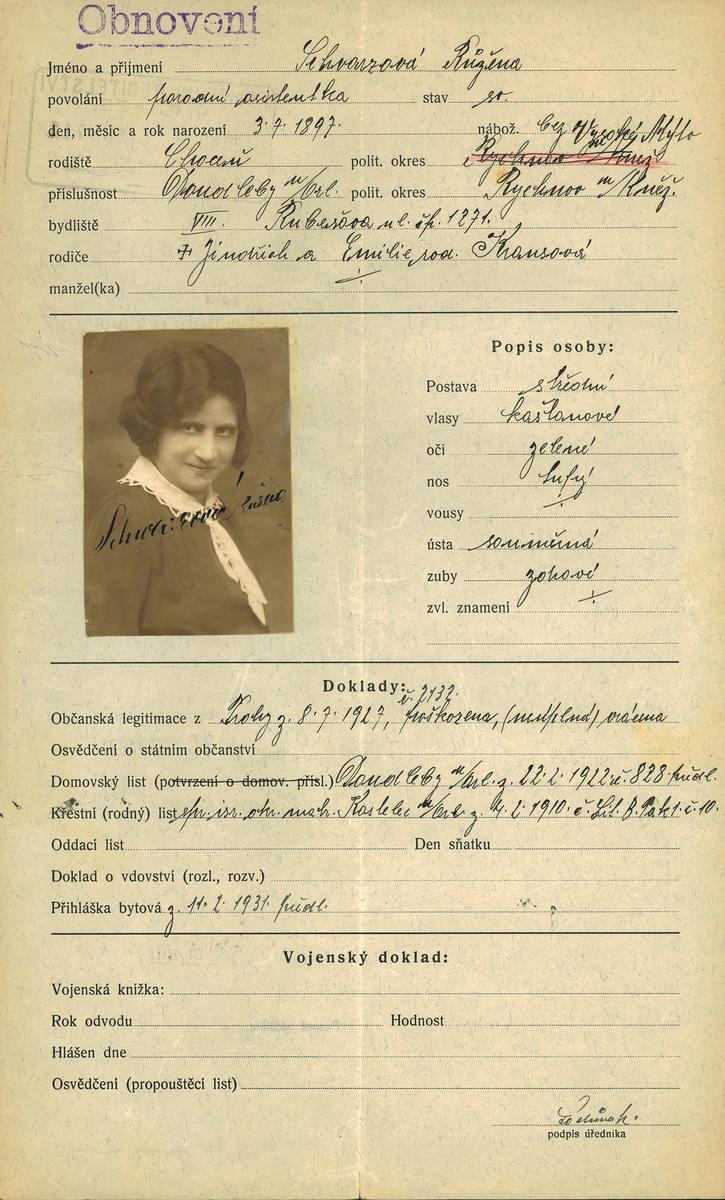 Obnovení
Jméno a přijmení Schvarzová Růžena
povolání porodní asistentka stav sv.
den, měsíc a rok narození 3.7.1897. nábož. bez vyz.
Vysoké Mýto
rodiště Choceň polit. okres Rychnov n/Kněž.
příslušnost Doudleby n/Orl. polit. okres Rychnov n/Kněž.
bydliště VIII. Rubešova ul. čp. 1271.
rodiče Jindřich a Emilie, roz. Krausová
manžel(ka) ÷
Popis osoby:
Postava střední
vlasy kaštanové
oči zelené
nos tupý
vousy ÷
ústa souměrná
zuby zdravé
zvl. znamení ÷
Schvarzová Růžena
Doklady:
č. 2132.
Občanská legitimace z Prahy z 8.7.1927, poškozena, (neúplná) vrácena
Osvědčení o státním občanství
Domovský list (potvrzení o domov. přísl.) Doudleby n/Orl. z. 22.2.1922 č. 828 předl.
Křestní (rodný) list isr. matr. Kostelec n/Orl. z 4.2.1910. č. Lit. B. Pak 1. č. 10.
Oddací list Den sňatku
Doklad o vdovství (rozl., rozv.)
Přihláška bytová z 11.2.1931 předl.
Vojenský doklad:
Vojenská knížka:
Rok odvodu Hodnost
Hlášen dne
Osvědčení (propouštěcí list)
podpis úředníka